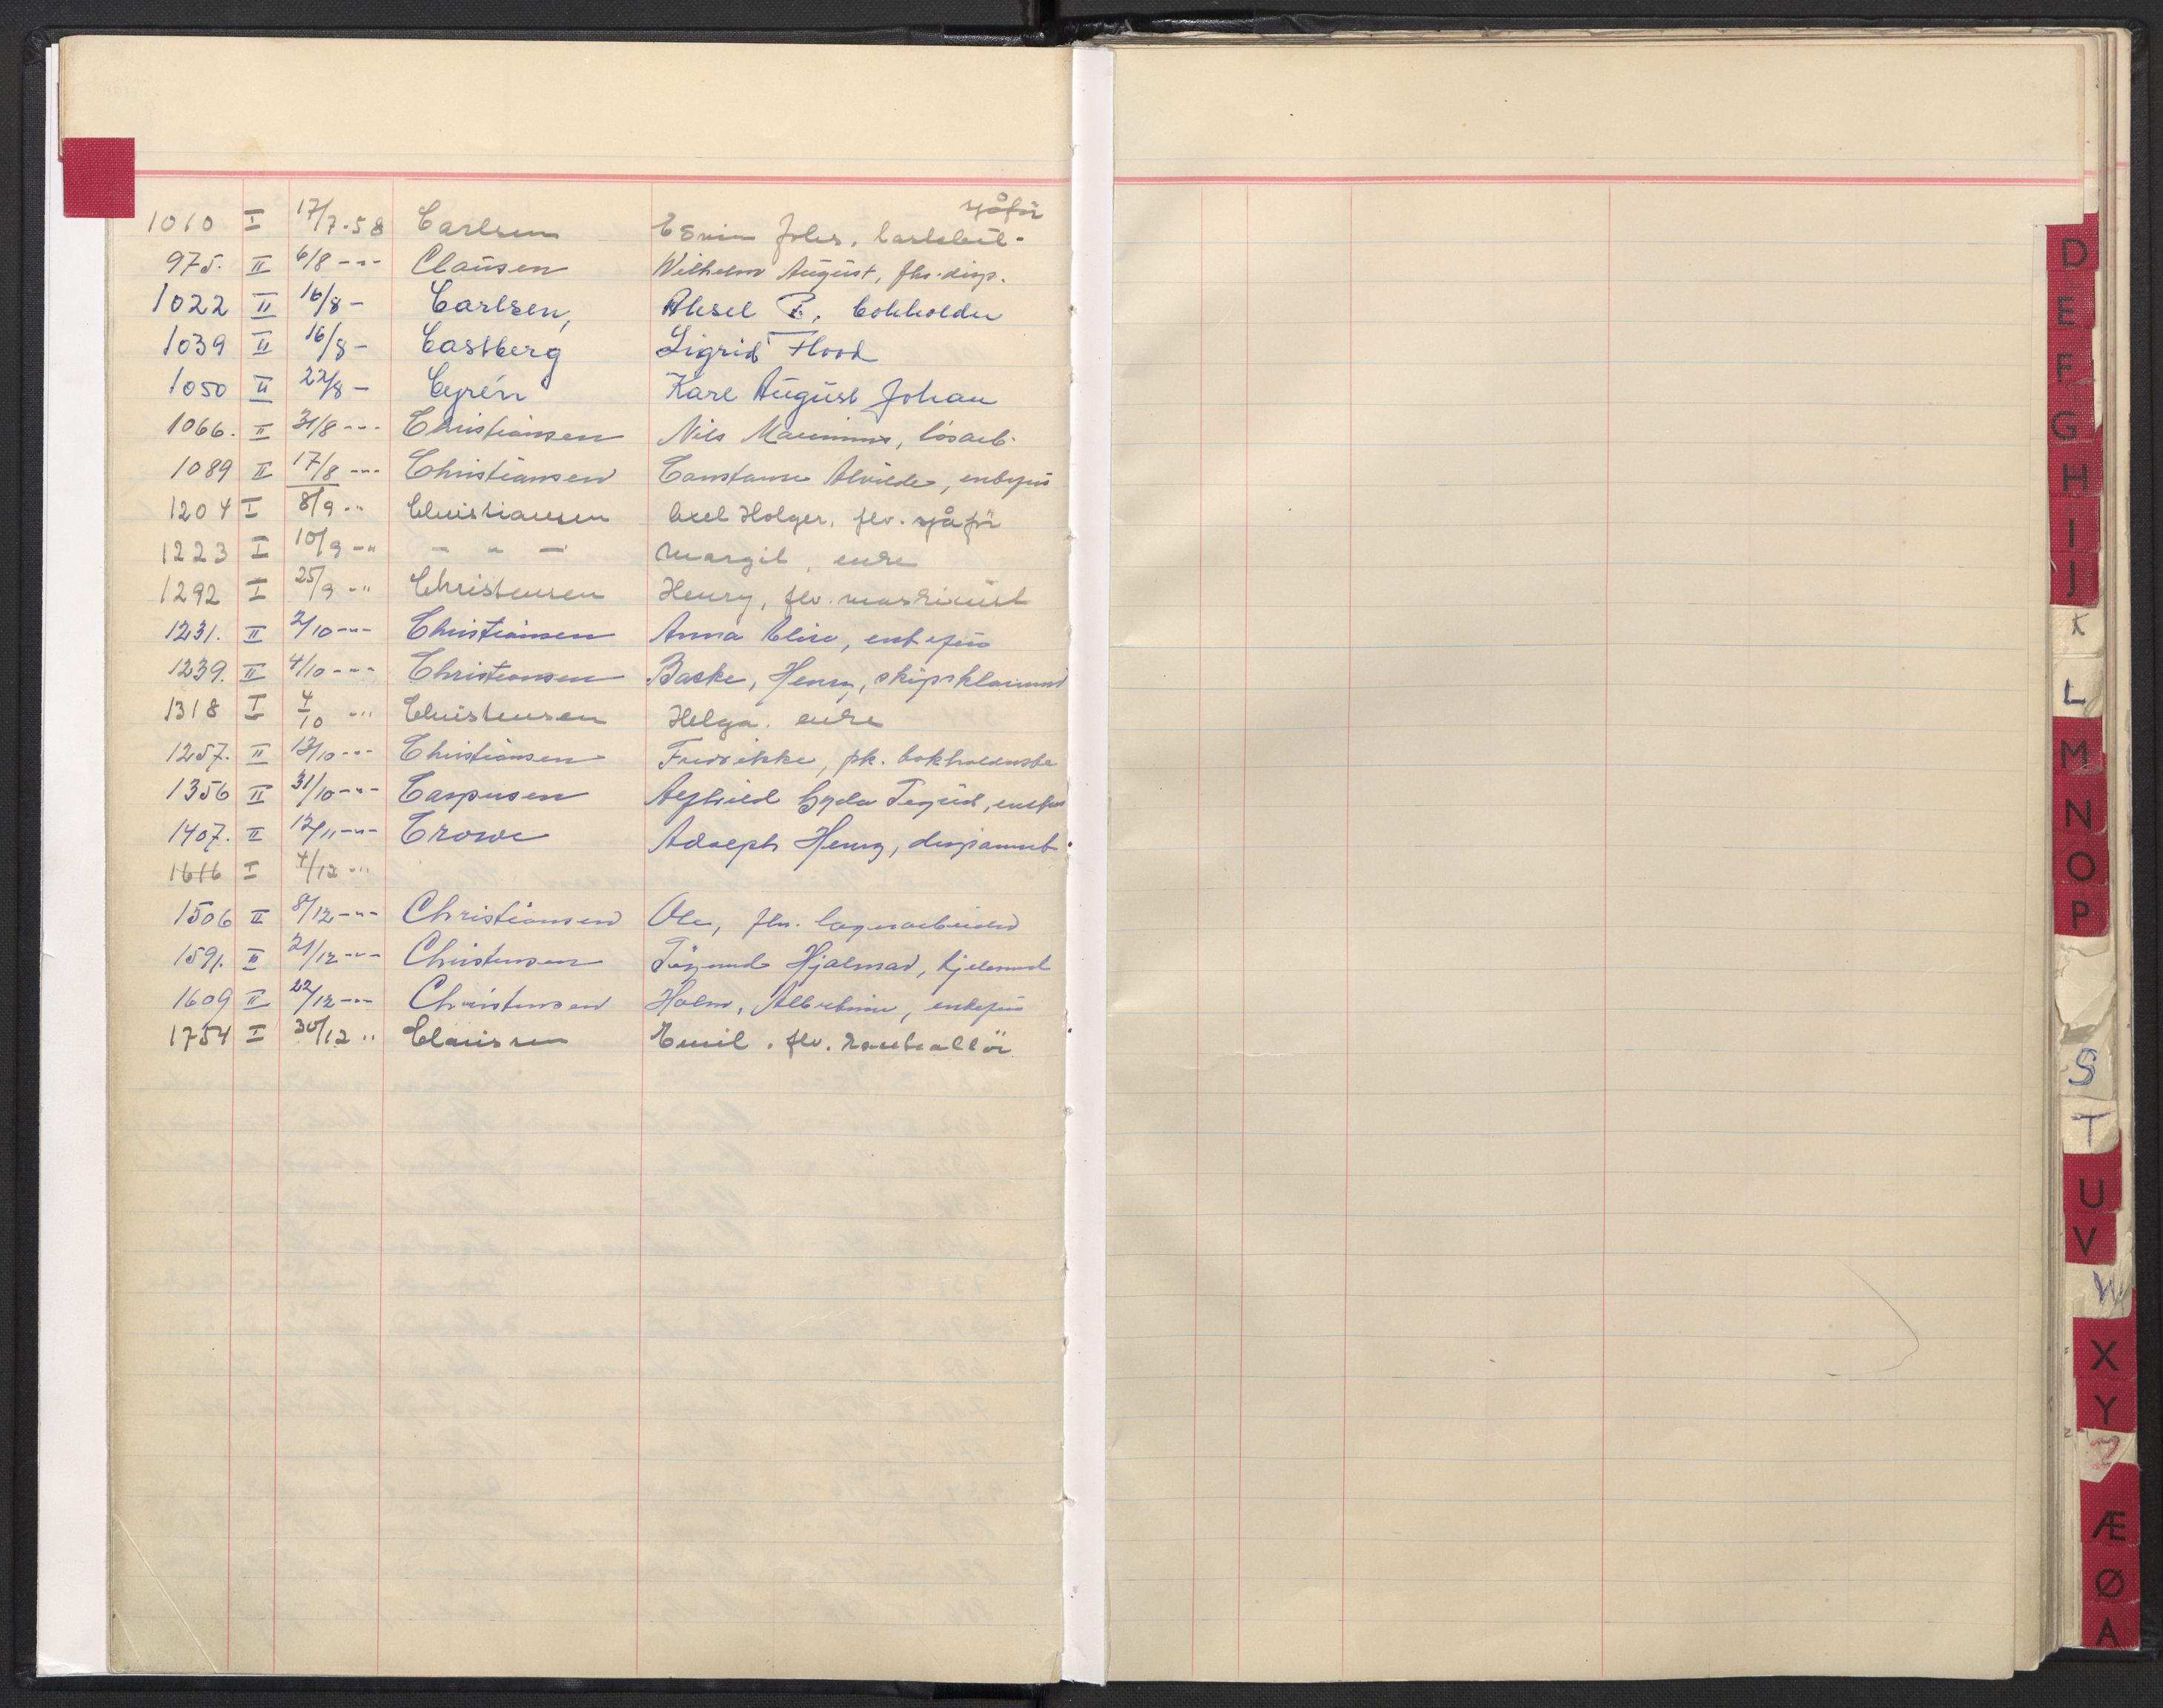 sjåför
1010 I 17/7-58 Carlsen Edvin Johs. lastebil-
975. II 6/8 -"- Clausen Wilhelm August, fhv. disp.
1022 II 16/8 - Carlsen, Aksel P. bokholder
1039 II 16/8 - Castberg Sigrid Flood
1050 II 22/8 - Cyrén Karl August Johan
1066. II 31/8 -"- Christiansen Nils Marinius, løsarb.
1089 II 17/8 -"- Christiansen Constanse Alvilde, enkefru
1204 I 8/9 -" Christiansen Axel Holger, flv. sjåför
1223 I 10/9 -" - " - Margit, enke
1292 I 25/9 -" Christensen Henry, flv. maskinist
1231. II 2/10 -"- Christiansen Anna Elise, enkefru
1239. II 4/10 -"- Christiansen Baske, Henry, skipsklarerer
1318 I 4/10 -" Christensen Helga. enke
1257. II 13/10 -"- Christiansen Fredrikke, pk. bokholderske
1356 II 31/10 -"- Caspersen Gyda enkefru
1407. II 12/11 -"- Crowe Adolph Henry,
1616 I 4/12 -"
1506 II 8/12 -"- Christiansen Ole, fhv. lagerarbeider
1591. II 21/12 -"- Christensen Hjalmar,
1609 II 22/12 -"- Christensen Holm, Albertine, enkefru
1754 I 30/12 " Claussen Emil. flv.
D
E
F
G
H
I
J
K
L
M
N
O
P
S
T
U
V
W
X
Y
Z
Æ
Ø
A